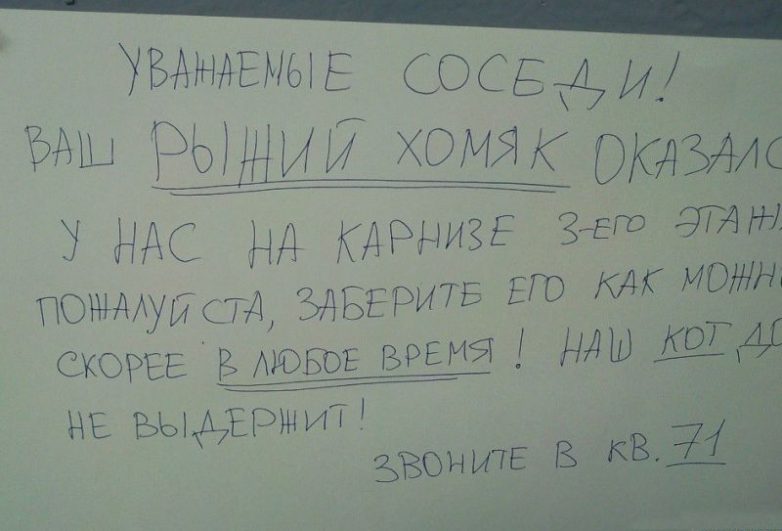 УВАЖАЕМЫЕ СОСЕДИ!
ВАШ РЫЖИЙ ХОМЯК ОКАЗАЛС
У НАС НА КАРНИЗЕ 3-ЕГО ЭТАЖ
ПОЖАЛУЙСТА, ЗАБЕРИТЕ ЕГО КАК МОЖН
СКОРЕЕ В ЛЮБОЕ ВРЕМЯ! НАШ КОТ ДО
НЕ ВЫДЕРЖИТ!
ЗВОНИТЕ В КВ. 71